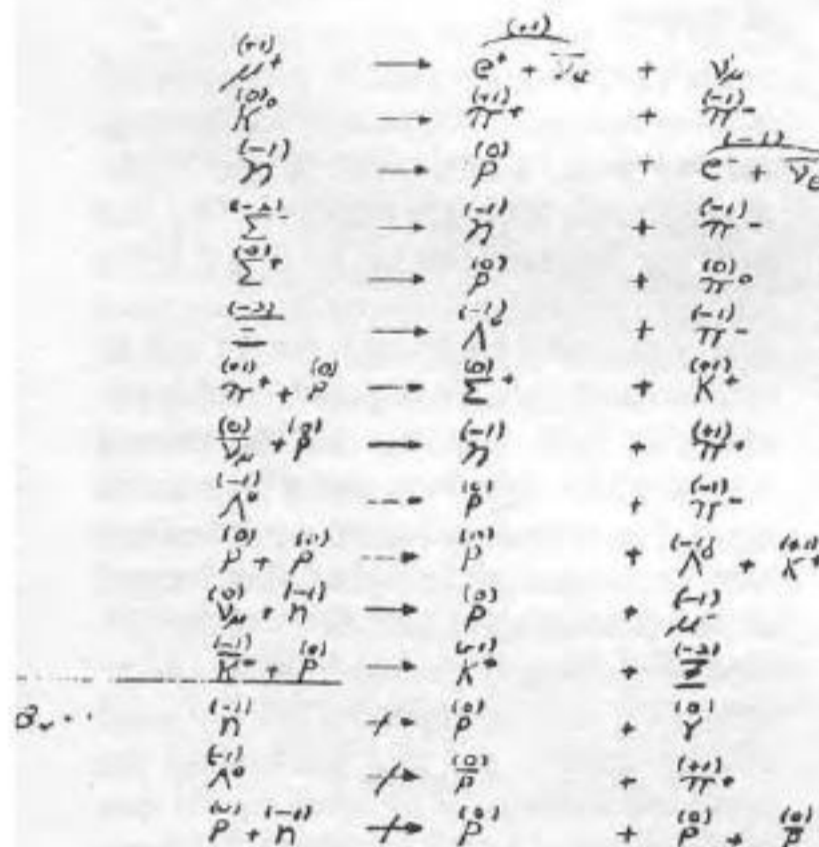 (+1) μ⁺ → (+1) e⁺ + ν̅ₑ + ν_μ
(0) K⁰ → (+1) π⁺ + (-1) π⁻
(-1) n → (0) p + (-1) e⁻ + ν̅ₑ
(-2) Σ⁻ → (-1) n + (-1) π⁻
(0) Σ⁺ → (0) p + (0) π⁰
(-2) Ξ → (-1) Λ⁰ + (-1) π⁻
(+1) π⁺ + (0) p → (0) Σ⁺ + (+1) K⁺
(0) ν̅_μ + (0) p → (-1) n + (+1) π⁺
(-1) Λ⁰ → (0) p + (-1) π⁻
(0) p + (0) p → (0) p + (-1) Λ⁰ + (+1) K⁺
(0) ν_μ + (-1) n → (0) p + (-1) μ⁻
(-1) K + (0) p → (+1) K⁺ + (-2) Ξ
(-1) n ↛ (0) p + (0) γ
(-1) Λ⁰ ↛ (0) p̅ + (+1) π⁺
(0) p + (-1) n ↛ (0) p + (0) p + (0) p̅